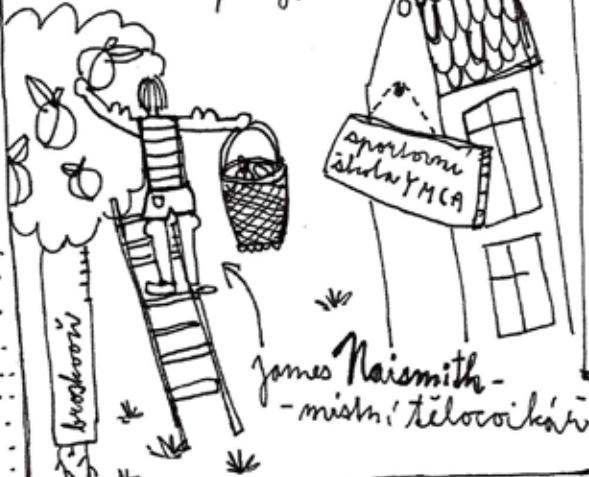 sportovní
škola YMCA
broskvoň
James Naismith -
- místní tělocvikář